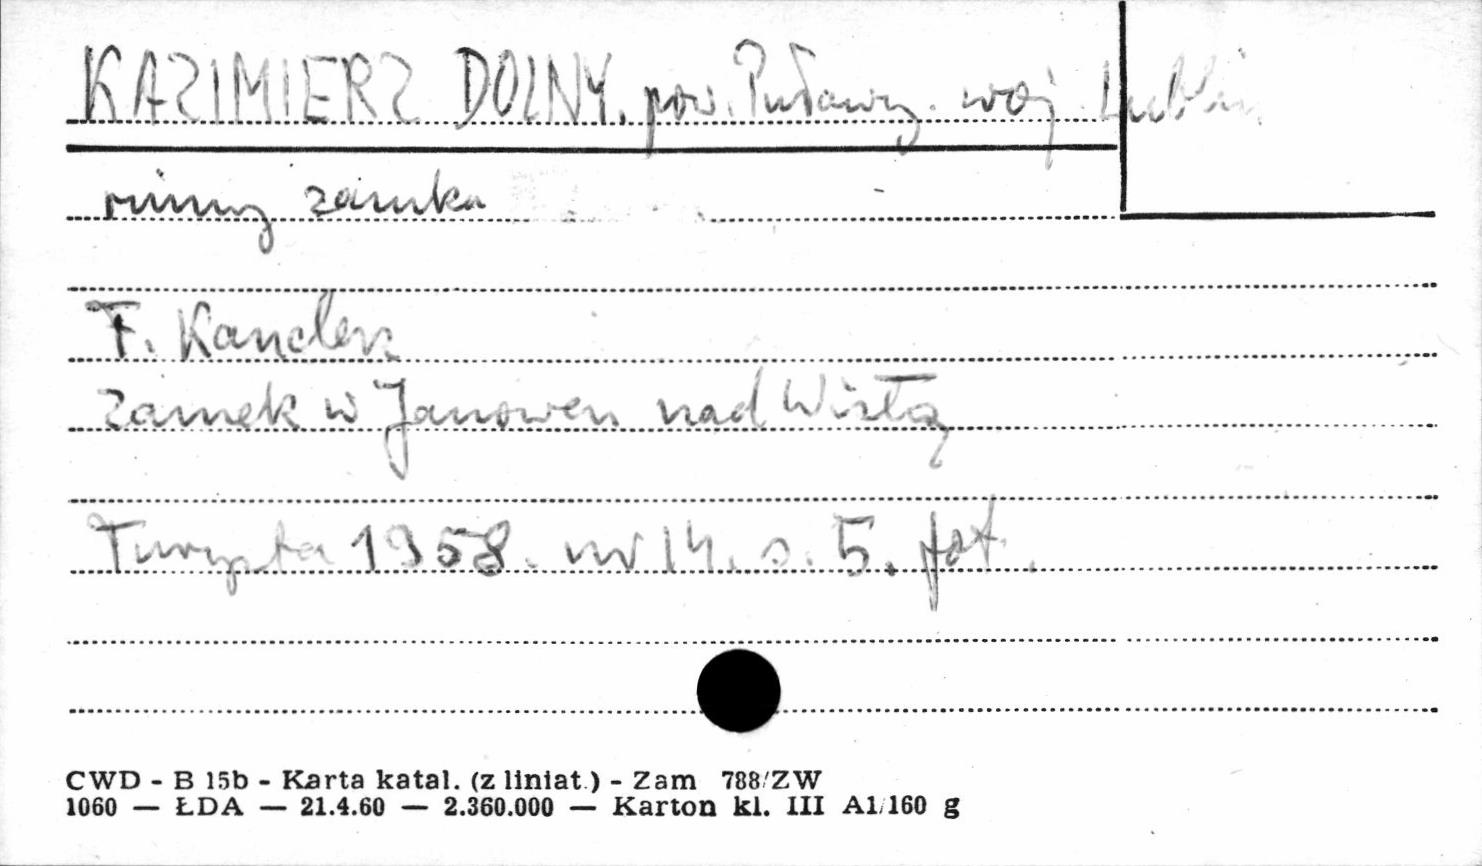 KAZIMIERZ DOLNY. pow. Puławy. woj. Lublin
ruiny zamku
F. Kancler
Zamek w Janowcu nad Wisłą
Turysta 1958. nr 14. s. 5. fot.
CWD - B 15b - Karta katal. (z liniat.) - Zam 788/ZW
1060 — ŁDA — 21.4.60 — 2.360.000 — Karton kl. III A1/160 g